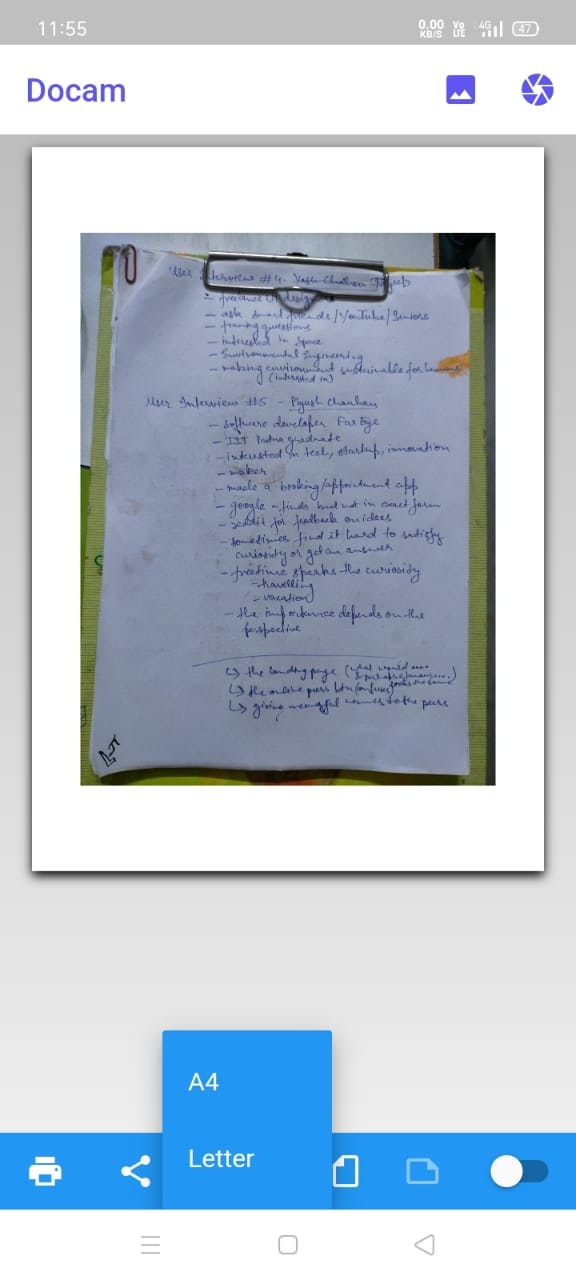 11:55
0.00 KB/S Vo LTE 4G 47
Docam
User Interview #4 - Yash Chauhan
- freelance UI designer
- ask smart friends/Youtube/Seniors
- framing questions
- interested in space
- Environmental Engineering
- making environment sustainable for humans
(interested in)
User Interview #5 - Piyush Chauhan
- software developer FarEye
- IIT Patna graduate
- interested in tech, startup, innovation
- maker
- made a booking/appointment app
- google - finds but not in exact form
- reddit for feedback on ideas
- sometimes find it hard to satisfy
curiosity or get an answer
- freetime sparks the curiosity
- travelling
- vacation
- the importance depends on the
perspective
↳ the landing page (what would ....
↳ the online peers btn (confuses)
↳ giving meaningful names to the peers
A4
Letter